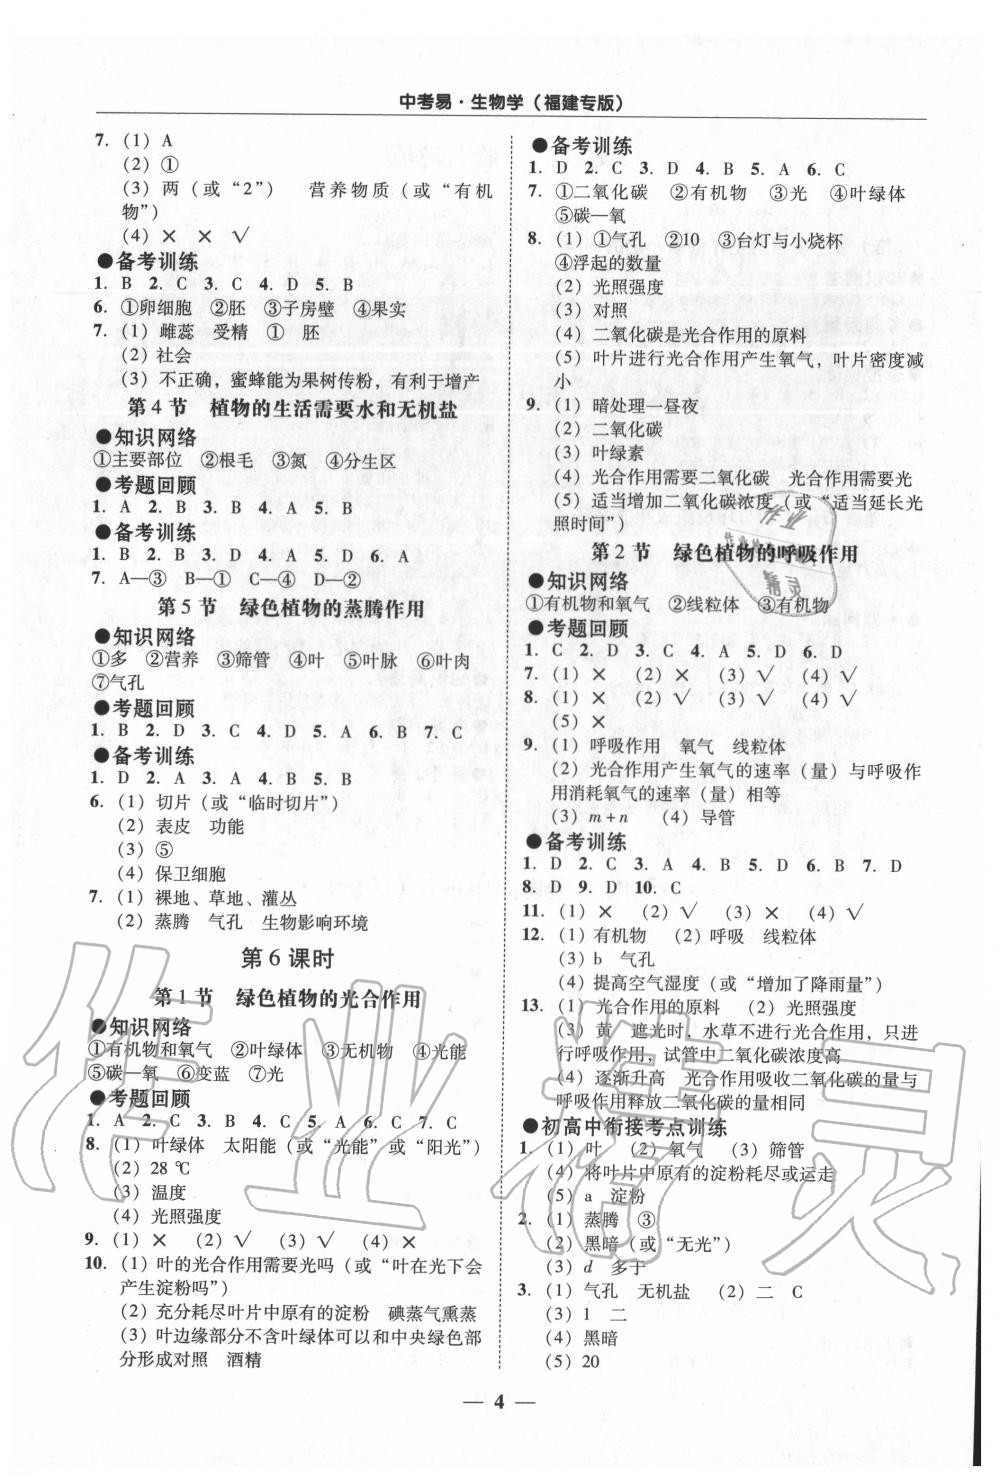 中考易·生物学（福建专版）
7. (1) A
(2) ①
(3) 两（或“2”）　营养物质（或“有机
物”）
(4) ×　×　√
●备考训练
1. B　2. C　3. C　4. D　5. B
6. ①卵细胞　②胚　③子房壁　④果实
7. (1) 雌蕊　受精　①　胚
(2) 社会
(3) 不正确，蜜蜂能为果树传粉，有利于增产
第 4 节　植物的生活需要水和无机盐
●知识网络
①主要部位　②根毛　③氮　④分生区
●考题回顾
1. A　2. B　3. B　4. A　5. B
●备考训练
1. B　2. B　3. D　4. A　5. D　6. A
7. A—③　B—①　C—④　D—②
第 5 节　绿色植物的蒸腾作用
●知识网络
①多　②营养　③筛管　④叶　⑤叶脉　⑥叶肉
⑦气孔
●考题回顾
1. B　2. D　3. C　4. D　5. A　6. B　7. C
●备考训练
1. D　2. A　3. A　4. B　5. B
6. (1) 切片（或“临时切片”）
(2) 表皮　功能
(3) ⑤
(4) 保卫细胞
7. (1) 裸地、草地、灌丛
(2) 蒸腾　气孔　生物影响环境
第 6 课时
第 1 节　绿色植物的光合作用
●知识网络
①有机物和氧气　②叶绿体　③无机物　④光能
⑤碳—氧　⑥变蓝　⑦光
●考题回顾
1. A　2. C　3. B　4. C　5. A　6. C　7. C
8. (1) 叶绿体　太阳能（或“光能”或“阳光”）
(2) 28 ℃
(3) 温度
(4) 光照强度
9. (1) ×　(2) √　(3) √　(4) ×
10. (1) 叶的光合作用需要光吗（或“叶在光下会
产生淀粉吗”）
(2) 充分耗尽叶片中原有的淀粉　碘蒸气熏蒸
(3) 叶边缘部分不含叶绿体可以和中央绿色部
分形成对照　酒精
●备考训练
1. D　2. C　3. D　4. B　5. A　6. C
7. ①二氧化碳　②有机物　③光　④叶绿体
⑤碳—氧
8. (1) ①气孔　②10　③台灯与小烧杯
④浮起的数量
(2) 光照强度
(3) 对照
(4) 二氧化碳是光合作用的原料
(5) 叶片进行光合作用产生氧气，叶片密度减
小
9. (1) 暗处理一昼夜
(2) 二氧化碳
(3) 叶绿素
(4) 光合作用需要二氧化碳　光合作用需要光
(5) 适当增加二氧化碳浓度（或“适当延长光
照时间”）
第 2 节　绿色植物的呼吸作用
●知识网络
①有机物和氧气　②线粒体　③有机物
●考题回顾
1. C　2. D　3. C　4. A　5. D　6. D
7. (1) ×　(2) ×　(3) √　(4) √
8. (1) ×　(2) √　(3) √　(4) √
(5) ×
9. (1) 呼吸作用　氧气　线粒体
(2) 光合作用产生氧气的速率（量）与呼吸作
用消耗氧气的速率（量）相等
(3) m+n　(4) 导管
●备考训练
1. D　2. C　3. A　4. B　5. D　6. B　7. D
8. D　9. D　10. C
11. (1) ×　(2) √　(3) ×　(4) √
12. (1) 有机物　(2) 呼吸　线粒体
(3) b　气孔
(4) 提高空气湿度（或“增加了降雨量”）
13. (1) 光合作用的原料　(2) 光照强度
(3) 黄　遮光时，水草不进行光合作用，只进
行呼吸作用，试管中二氧化碳浓度高
(4) 逐渐升高　光合作用吸收二氧化碳的量与
呼吸作用释放二氧化碳的量相同
●初高中衔接考点训练
1. (1) 叶　(2) 氧气　(3) 筛管
(4) 将叶片中原有的淀粉耗尽或运走
(5) a　淀粉
2. (1) 蒸腾　③
(2) 黑暗（或“无光”）
(3) d　多于
3. (1) 气孔　无机盐　(2) 二　C
(3) 1　二
(4) 黑暗
(5) 20
— 4 —
作业精灵